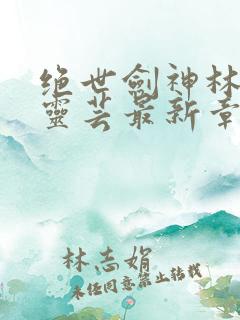 绝世剑神林
灵芸最新章
林志娟
未经同意禁止转载